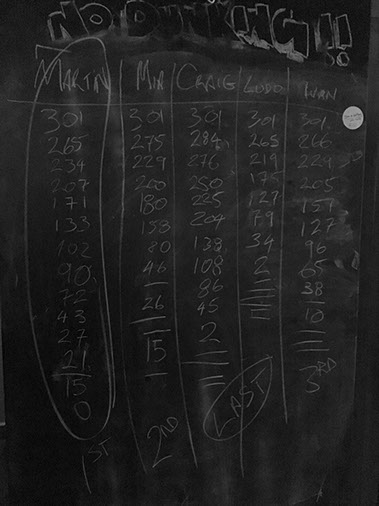 NO DUNKING!!
MARTIN MIA CRAIG LUDO
301 301 301 301 301
265 275 284 265 266
234 229 276 219 229
207 200 250 175 205
171 180 225 127 151
133 158 204 79 127
102 80 138 34 96
90 46 108 2 65
72 26 86 38
43 15 45 10
27 2
21
15
0
1ST 2ND LAST 3RD